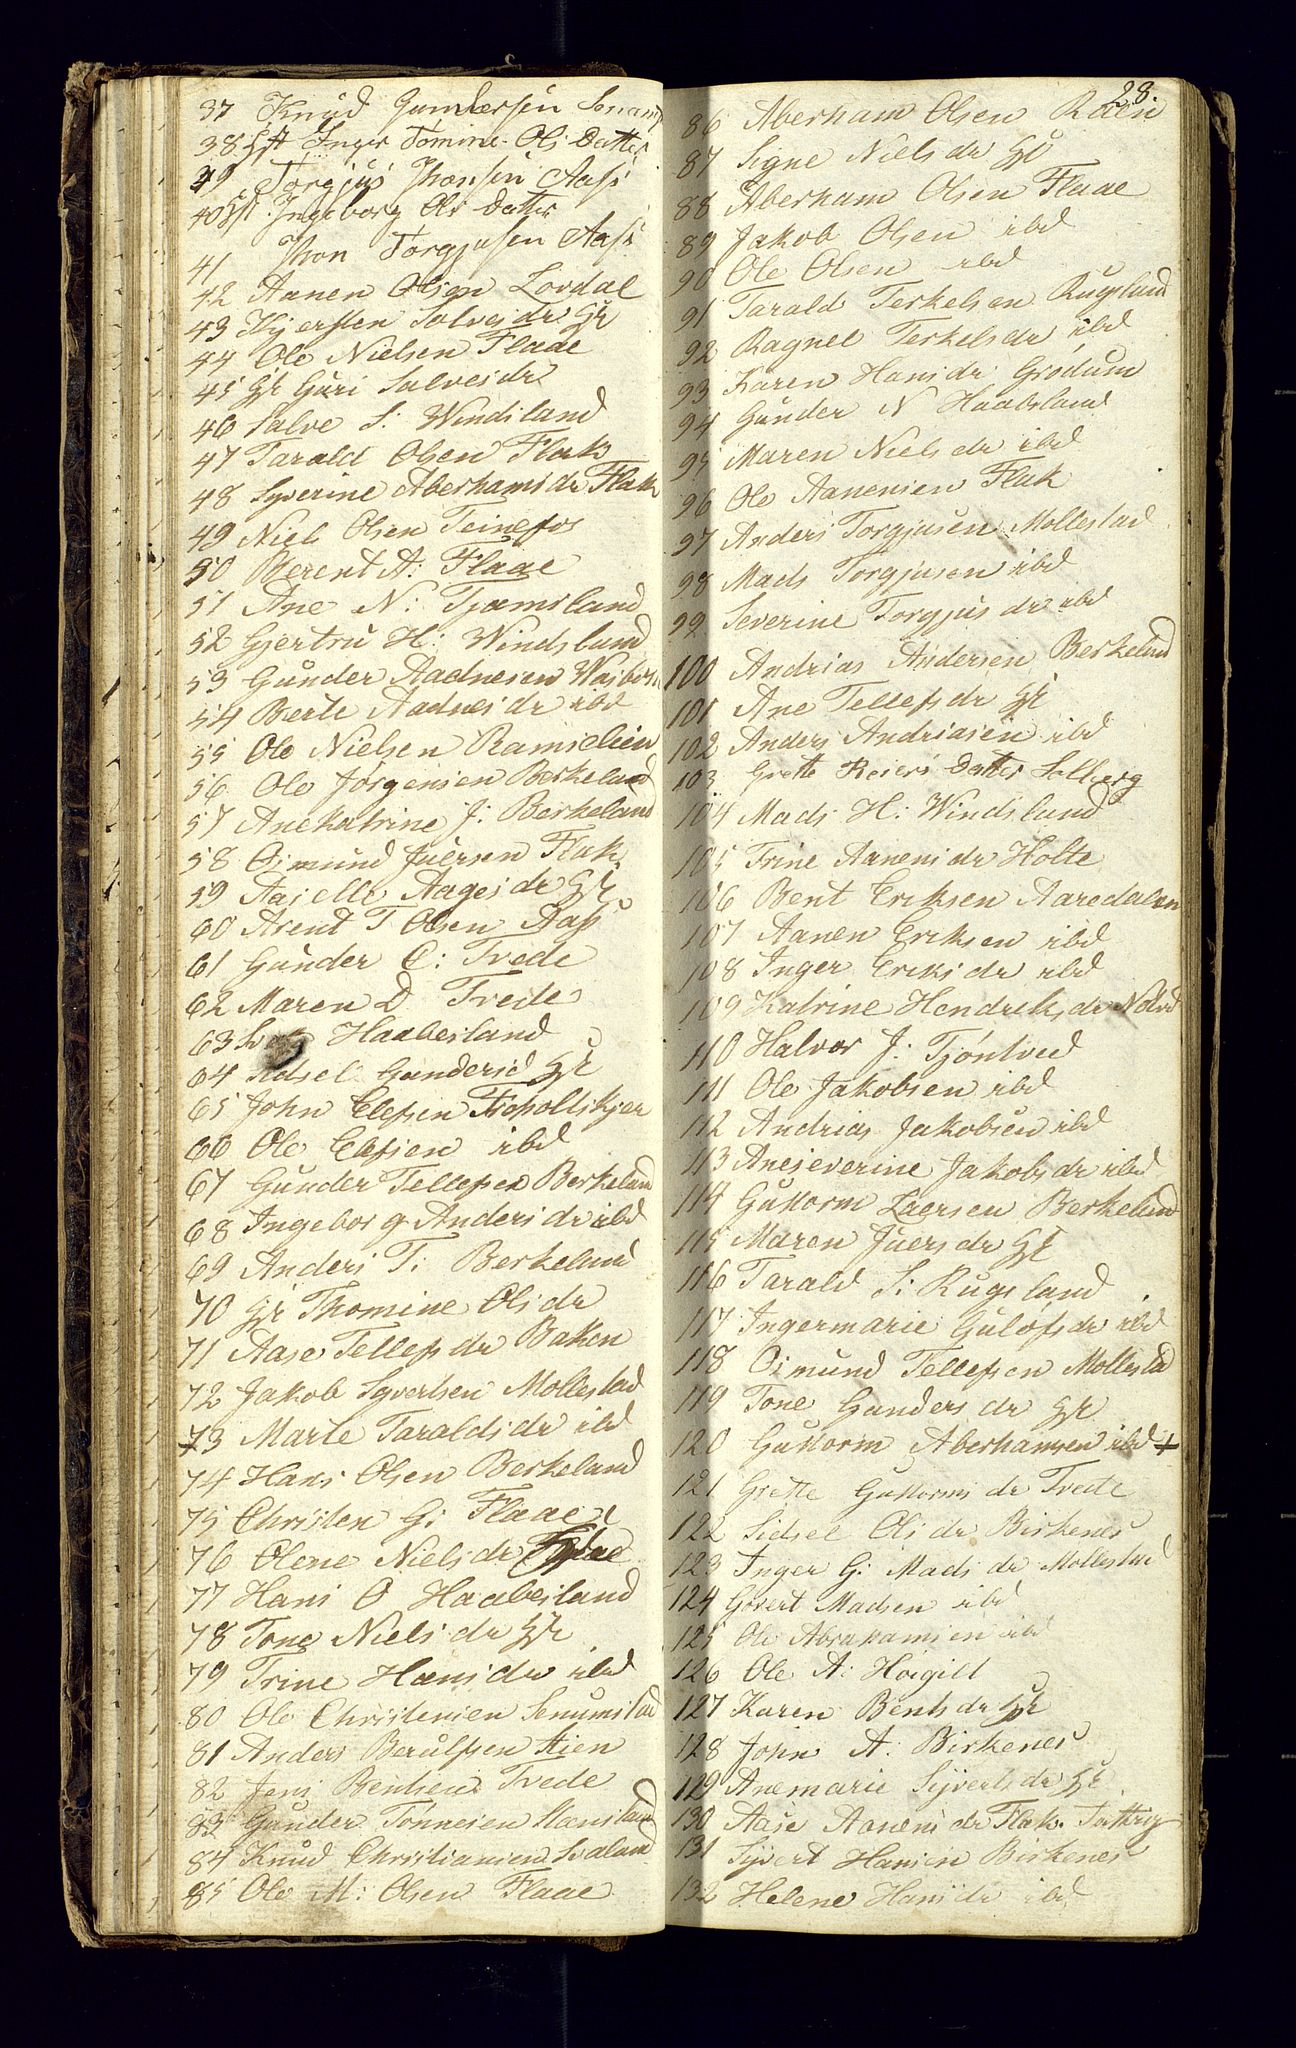 37 Knud Gundersen
38 Hst Inger Tomine Ols Datter
39 Torgjus Jhonsen Aass
40 Hst Ingeborg Ols Datter
41 Jhon Torgjusen Aass
42 Aanen Olsen Lovdal
43 Kjersten Salvesdr Hst
44 Ole Nielsen Flaae
45 Hst Guri Salvesdr
46 Salve S: Windsland
47 Tarald Olsen Flak
48 Syverine Aberhamsdr Flak
49 Niels Olsen Teinefos
50 Berent A: Flaae
51 Ane N: Tjomsland
52 Gjertru H: Windsland
53 Gunder Aadnesen
54 Berte Aadnesdr ibd
55 Ole Nielsen Ramselien
56 Ole Jørgensen Berkeland
57 Anekatrine J: Berkeland
58 Osmund Juersen Flak
59 Aaselle Aagesdr Hst
60 Arent T Olsen Aass
61 Gunder C: Trede
62 Maren D Trede
63 Haabesland
64 Sidsel Gundersd Hst
65 John Elefsen
66 Ole Elefsen ibd
67 Gunder Tellefsen Berkeland
68 Ingeborg Andersdr ibd
69 Anders T: Berkeland
70 Hst Thomine Olsdr
71 Aase Tellefsdr Baken
72 Jakob Syvertsen Mollestad
73 Marte Taraldsdr ibd
74 Hans Olsen Berkeland
75 Christen G: Flaae
76 Olene Nielsdr
77 Hans O Haabesland
78 Tone Nielsdr Hst
79 Trine Hansdr ibd
80 Ole Christensen Senumstad
81 Anders Berulfsen
82 Jens Bentsen Trede
83 Gunder Tønnesen
84 Knud Christiansen
85 Ole M: Olsen Flaae
28.
86 Aberham Olsen Røen
87 Signe Nielsdr Hst
88 Aberham Olsen Flaae
89 Jakob Olsen ibd
90 Ole Olsen ibd
91 Tarald Terkelsen Rugsland
92 Ragnel Terkelsdr ibd
93 Karen Hansdr Grødum
94 Gunder N Haabsland
95 Maren Nielsdr ibd
96 Ole Aanensen Flak
97 Anders Torgjusen Mollestad
98 Mads Torgjusen ibd
99 Severine Torgjusdr ibd
100 Andrias Andersen Berkeland
101 Ane Tellefsdr Hst
102 Anders Andriasen ibd
103 Grette Reiers Datter Solberg
104 Mads H: Windsland
105 Trine Aanensdr Holte
106 Bent Eriksen Aaredalen
107 Aanen Eriksen ibd
108 Inger Eriksdr ibd
109 Katrine Hendreksdr
110 Halvor J: Tjøntved
111 Ole Jakobsen ibd
112 Andrias Jakobsen ibd
113 Aneseverine Jakobsdr ibd
114 Guttorm Laersen Berkeland
115 Maren Juersdr Hst
116 Tarald S: Rugsland
117 Ingermarie Gulofsdr ibd
118 Osmund Tellefsen Mollestad
119 Tone Gundersdr Hst
120 Guttorm Aberhamsen ibd +
121 Grette Guttormsdr Trede
122 Sidsel Olsdr Birkenes
123 Inger G: Madsdr Mollestad
124 Govert Madsen ibd
125 Ole Abrahamsen ibd
126 Ole A: Høigilt
127 Karen Bentsdr Hst
128 John A: Birkenes
129 Anemarie Syvertsdr Hst
130 Aase Aanensdr Flak
131 Syvert Hansen Birkenes
132 Helene Hansdr ibd